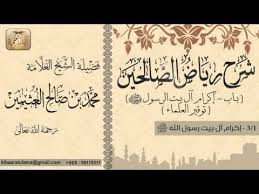 شرح رياض الصالحين
(باب - إكرام آل بيت الرسول ﷺ)
(توقير العلماء)
3/1 - إكرام آل بيت رسول الله ﷺ
فضيلة الشيخ العلامة
محمد بن صالح العثيمين
رحمه الله تعالى
kibaarululama@gmail.com